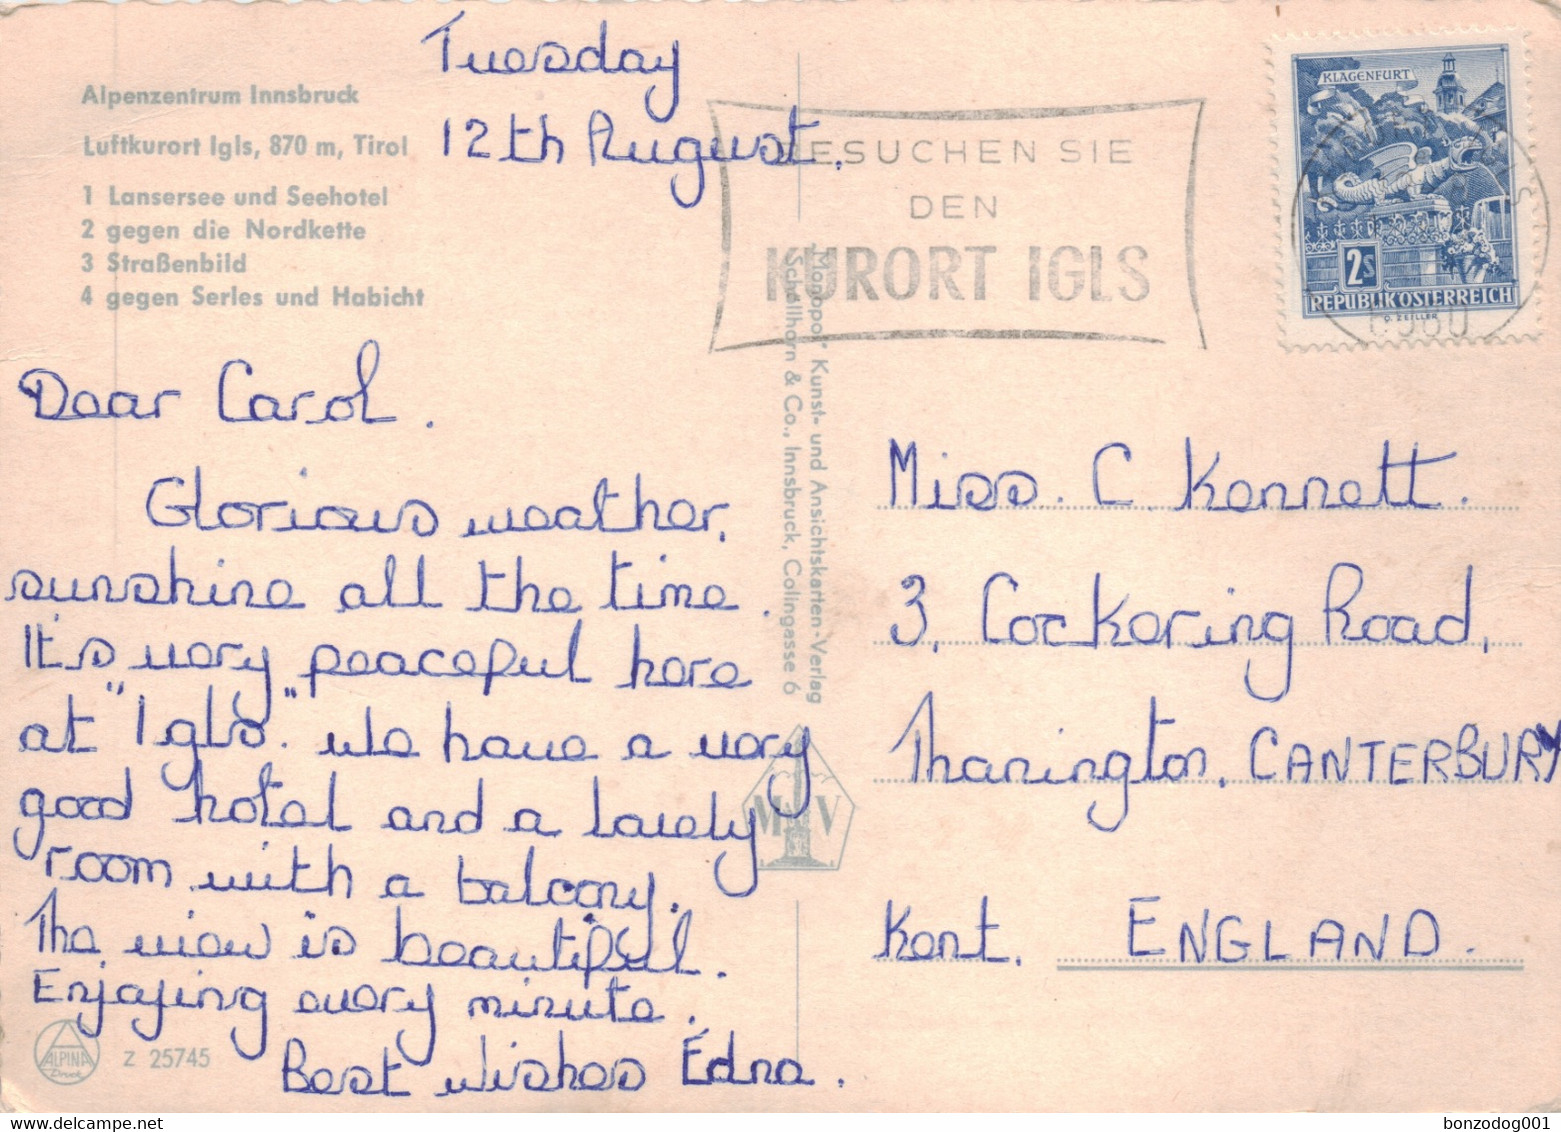 Alpenzentrum Innsbruck
Luftkurort Igls, 870 m, Tirol
1 Lansersee und Seehotel
2 gegen die Nordkette
3 Straßenbild
4 gegen Serles und Habicht
Tuesday
12th August.
Dear Carol.
Glorious weather,
sunshine all the time.
It's very peaceful here
at "Igls." We have a very
good hotel and a lovely
room with a balcony.
The view is beautiful.
Enjoying every minute.
Best Wishes Edna.
ALPINA
Druck
Z 25745
„Monopol" Kunst- und Ansichtskarten-Verlag
Schöllhorn & Co., Innsbruck, Colingasse 6
M V
BESUCHEN SIE
DEN
KURORT IGLS
KLAGENFURT
2s
REPUBLIK ÖSTERREICH
O. ZEILLER
Miss. C. Kennett.
3, Cockering Road,
Thanington, CANTERBURY
Kent. ENGLAND.
delcampe.net
bonzodog001